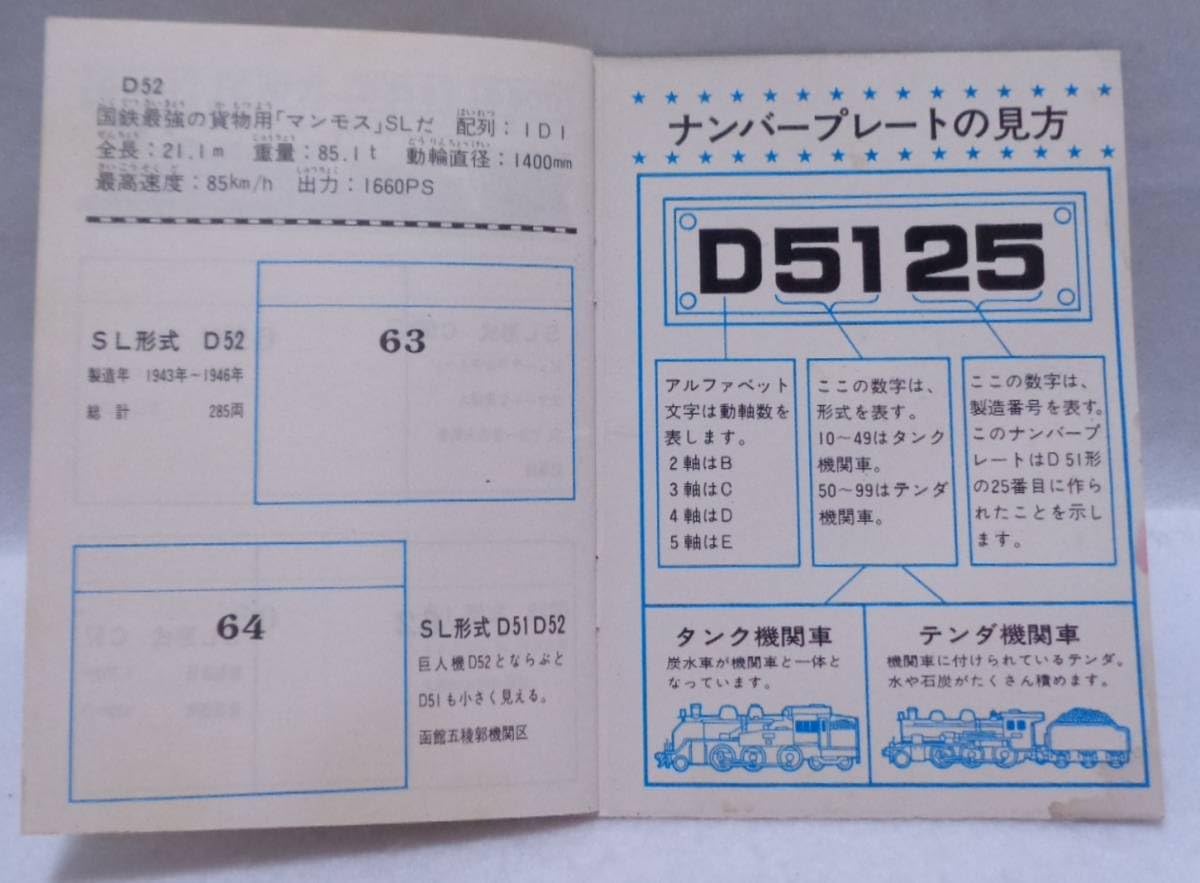 D52
国鉄最強の貨物用「マンモス」SLだ 配列：1D1
全長：21.1m 重量：85.1t 動輪直径：1400mm
最高速度：85km/h 出力：1660PS
63
SL形式 D52
製造年 1943年～1946年
総計 285両
64
SL形式 D51 D52
巨人機D52とならぶと
D51も小さく見える。
函館五稜郭機関区
ナンバープレートの見方
D5125
アルファベット
文字は動軸数を
表します。
2軸はB
3軸はC
4軸はD
5軸はE
ここの数字は、
形式を表す。
10～49はタンク
機関車。
50～99はテンダ
機関車。
ここの数字は、
製造番号を表す。
このナンバープ
レートはD51形
の25番目に作ら
れたことを示し
ます。
タンク機関車
炭水車が機関車と一体と
なっています。
テンダ機関車
機関車に付けられているテンダ。
水や石炭がたくさん積めます。